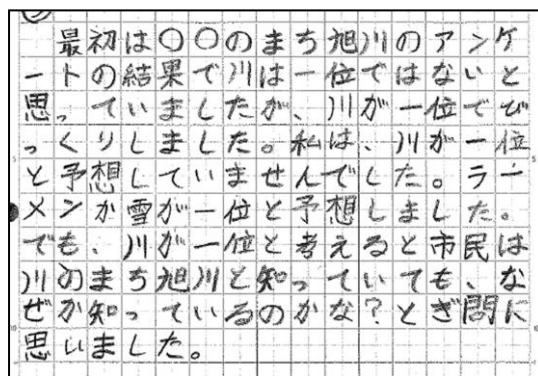 最初は○○のまち旭川のアンケ
ートの結果で川は一位ではないと
思っていましたが、川が一位でび
っくりしました。私は、川が一位
と予想していませんでした。ラー
メンか雪が一位と予想しました。
でも、川が一位と考えると市民は
川のまち旭川と知っていても、な
ぜか知っているのかな?とぎ問に
思いました。